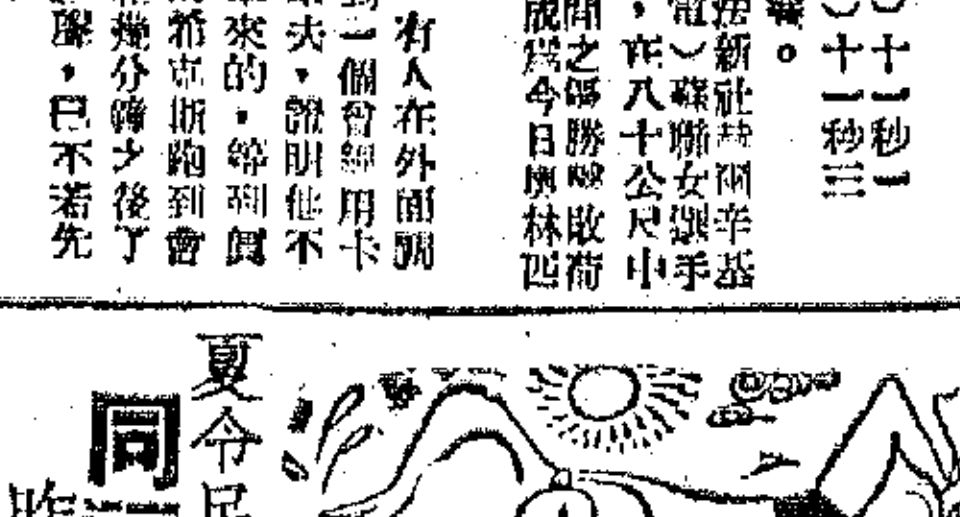 ）十一秒一
）十一秒三
。
法新社赫爾辛基
電）蘇聯女選手
，在八十公尺中
間之優勝擊敗荷
成為今日奧林匹
有人在外面
一個曾經用卡
夫，證明他不
來的，等到
希克斯跑到會
幾分鐘之後了
，已不若先
夏令民
同
昨